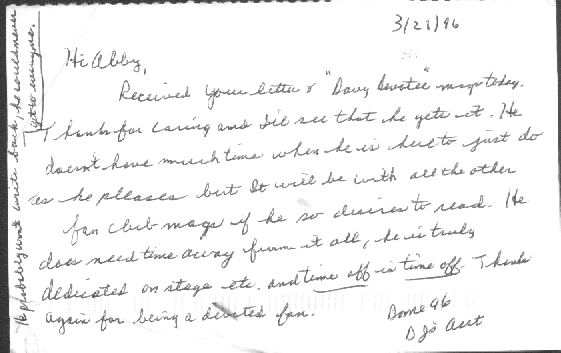 3/21/96
Hi Abby,
Received your letter & "Davy Devotee" mag today.
Thanks for caring and I'll see that he gets it. He
doesn't have much time when he is here to just do
as he pleases but It will be with all the other
fan club mags if he so desires to read. He
does need time away from it all, he is truly
dedicated on stage etc. and time off is time off. Thanks
again for being a devoted fan.
DJ's Asst
He probably won't write back, he could never
get to everyone.